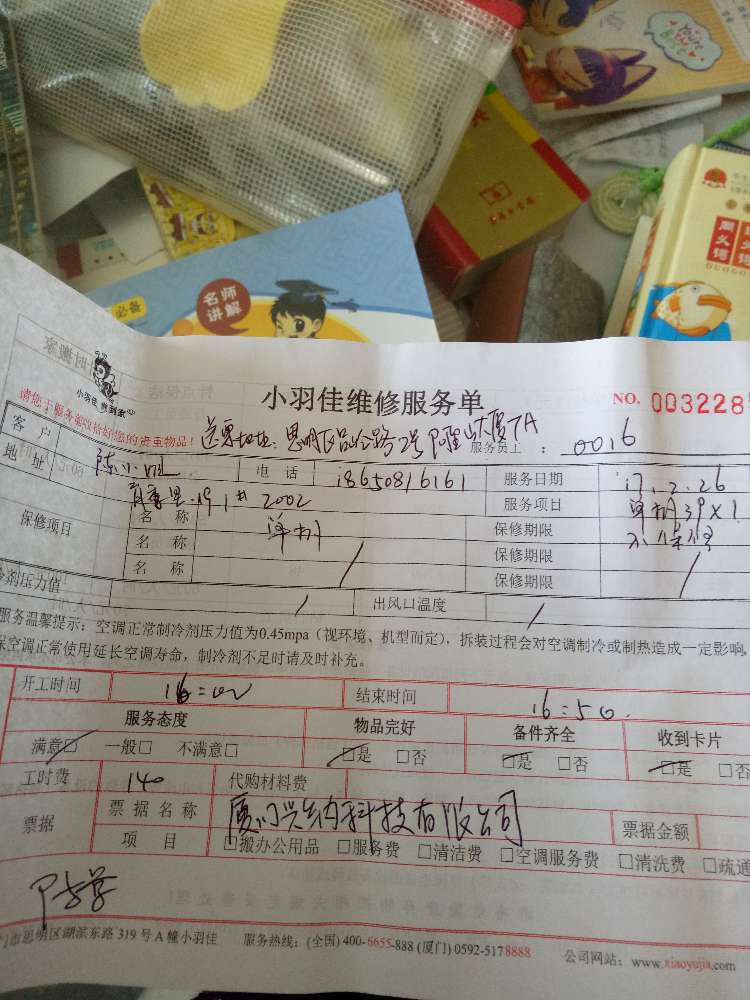 必备
名师
讲解
小羽佳维修服务单
NO. 003228
小羽佳 惠到家
请您于服务前收拾好您的贵重物品!
送票地址: 思明区
服务员工 : 0016
客户
地址
电话 18650816161
服务日期 17.2.26
19.1# 2002
服务项目 单机39×1
保修项目
名称 单机
保修期限 不保修
名称
保修期限
名称
保修期限
冷剂压力值
出风口温度
服务温馨提示:空调正常制冷剂压力值为0.45mpa(视环境、机型而定),拆装过程会对空调制冷或制热造成一定影响,
保空调正常使用延长空调寿命,制冷剂不足时请及时补充。
开工时间 16:00
结束时间 16:50.
服务态度 物品完好 备件齐全 收到卡片
满意□ 一般□ 不满意□ □是 □否 □是 □否 □是 □否
工时费 140 代购材料费
票据
票据名称 厦门兴纳科技有限公司 票据金额
项目 □搬办公用品 □服务费 □清洁费 □空调服务费 □清洗费 □疏通
门市思明区湖滨东路 319 号 A 幢小羽佳 服务热线:(全国) 400-6655-888 (厦门) 0592-5178888 公司网站:www.xiaoyujia.com